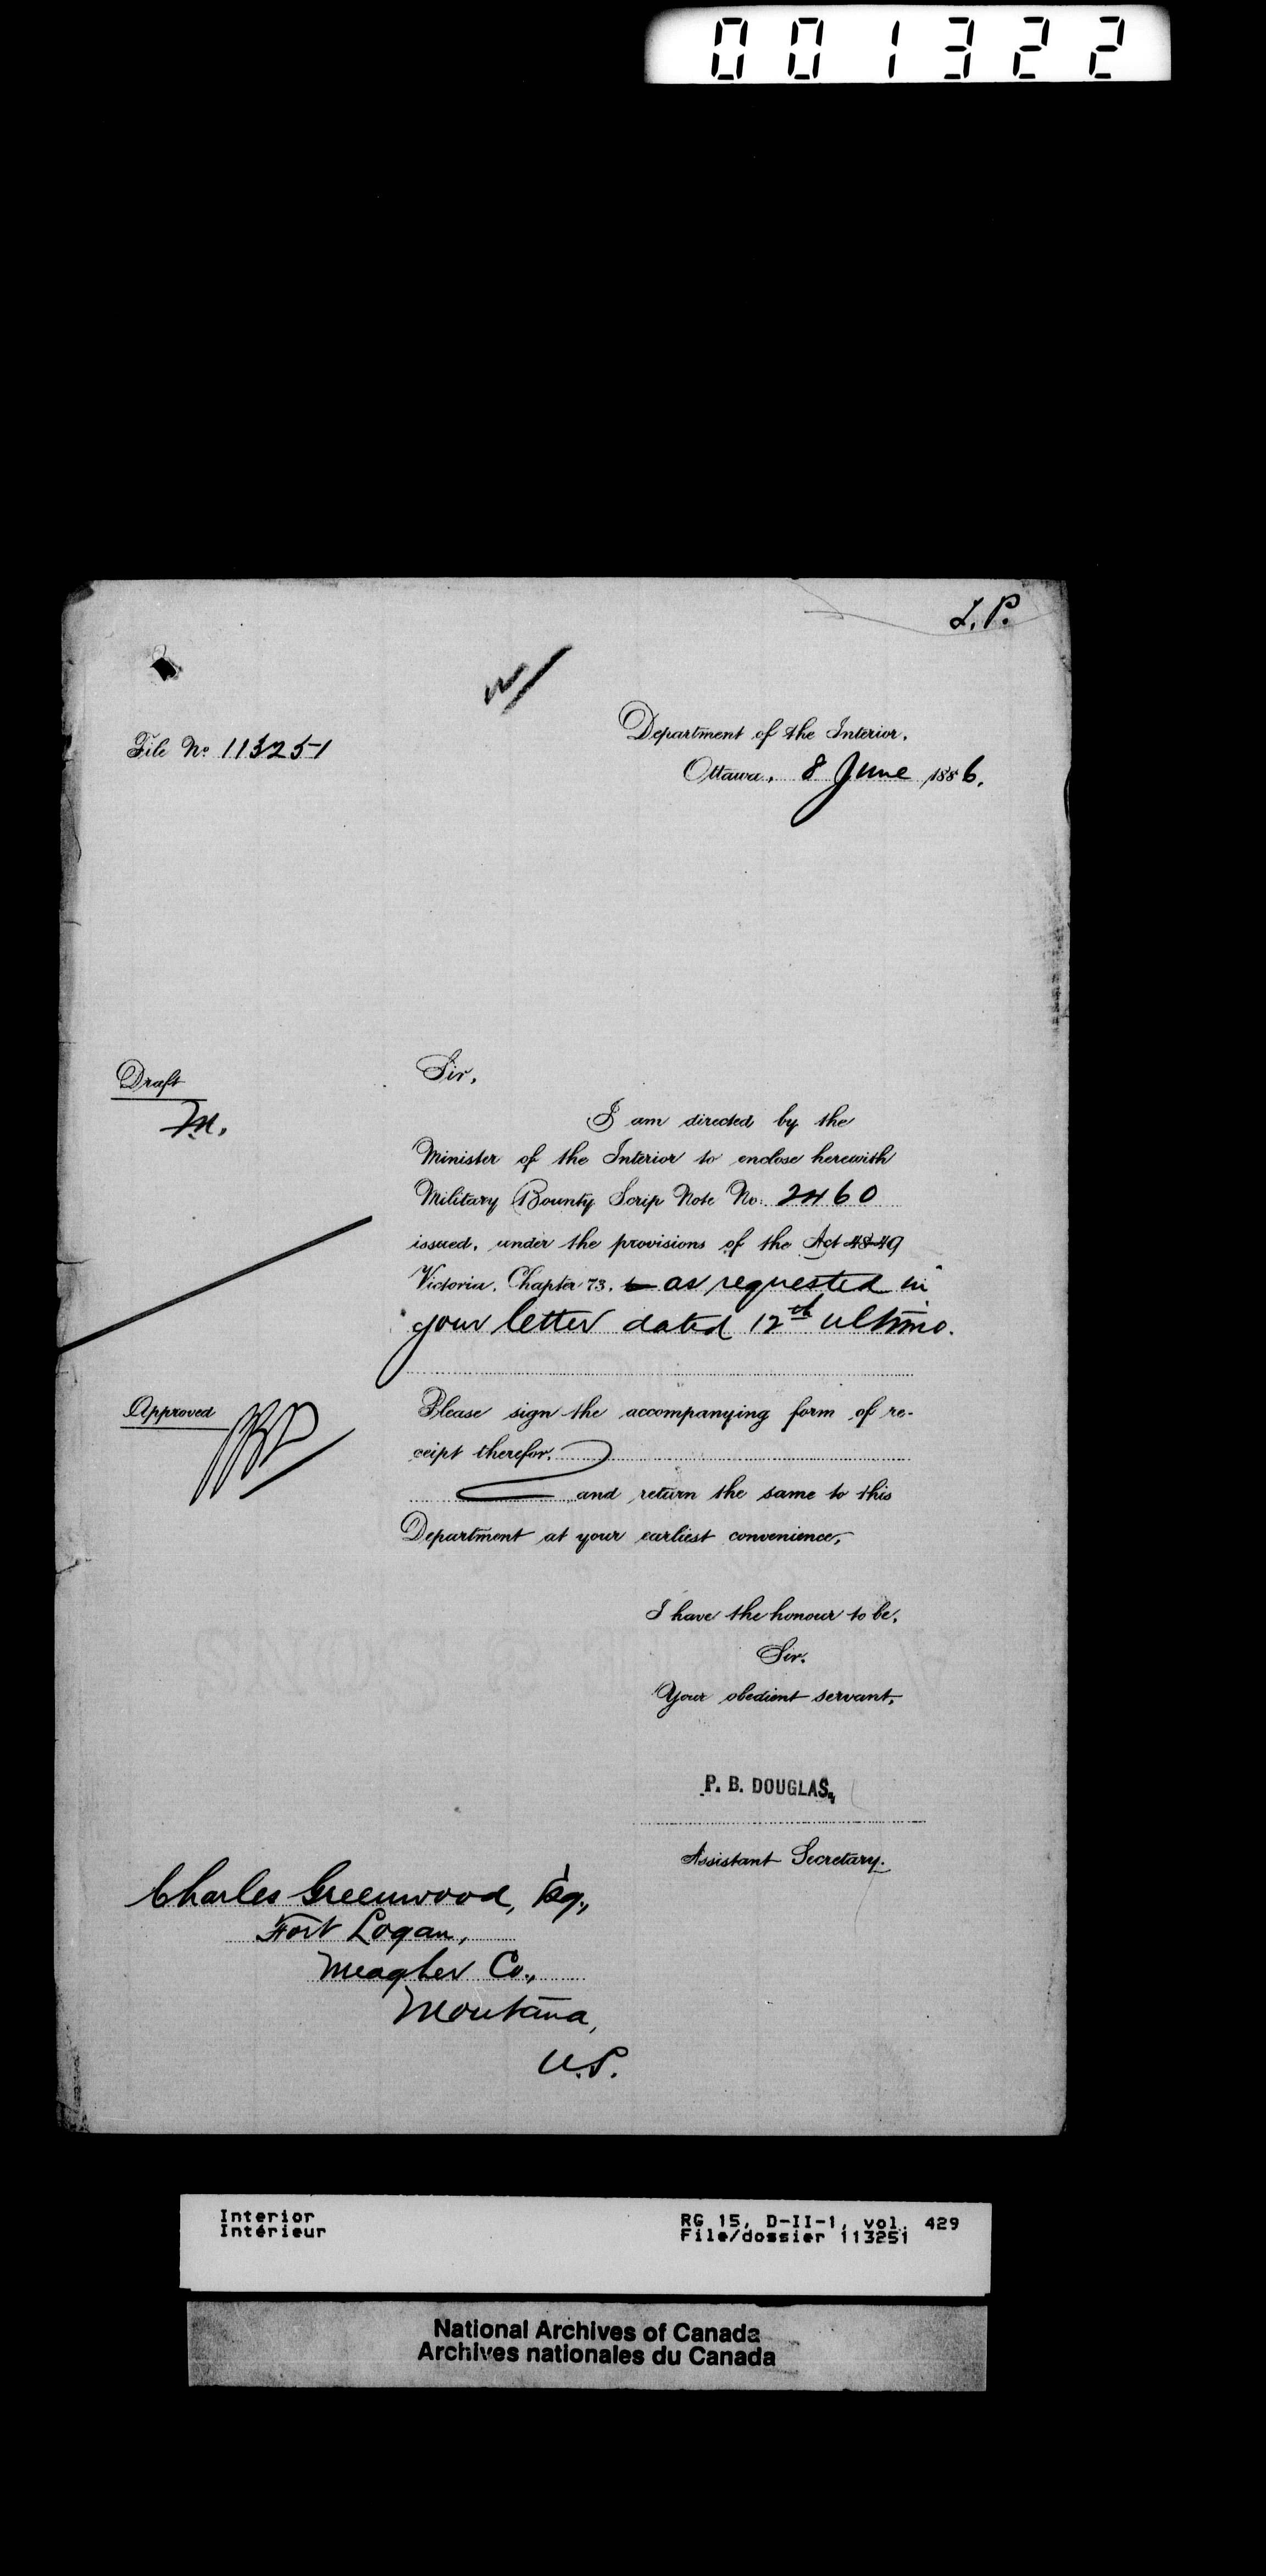 001322
L.P.
Department of the Interior,
File No 113251
Ottawa, 8 June 1886.
Draft
M.
Sir,
I am directed by the
Minister of the Interior to enclose herewith
Military Bounty Scrip Note No. 2460
issued, under the provisions of the Act 48-49
Victoria, Chapter 73, as requested in
your letter dated 12th ultimo.
Approved
Please sign the accompanying form of re-
ceipt therefor,
and return the same to this
Department at your earliest convenience,
I have the honour to be,
Sir,
Your obedient servant,
P. B. DOUGLAS,
Assistant Secretary.
Charles Greenwood, Esq.,
Fort Logan,
Meagher Co.,
Montana,
U.S.
Interior
Intérieur
RG 15, D-II-1, vol. 429
File/dossier 113251
National Archives of Canada
Archives nationales du Canada